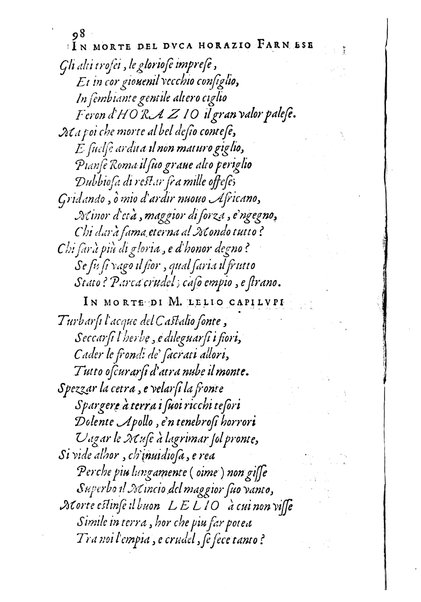 98
IN MORTE DEL DVCA HORAZIO FARNESE
Gli alti trofei, le gloriose imprese,
Et in cor giouenil vecchio consiglio,
In sembiante gentile altero ciglio
Feron d'HORAZIO il gran valor palese.
Ma poi che morte al bel desio contese,
E suelse ardita il non maturo giglio,
Pianse Roma il suo graue alto periglio
Dubbiosa di restar fra mille offese;
Gridando, ò mio d'ardir nuouo Africano,
Minor d'età, maggior di forza, e'ngegno,
Chi darà fama eterna al Mondo tutto?
Chi sarà più di gloria, e d'honor degno?
Se fù sì vago il fior, qual saria il frutto
Stato? Parca crudel; caso empio, e strano.
IN MORTE DI M. LELIO CAPILVPI
Turbarsi l'acque del Castalio fonte,
Seccarsi l'herbe, e dileguarsi i fiori,
Cader le frondi de' sacrati allori,
Tutto oscurarsi d'atra nube il monte.
Spezzar la cetra, e velarsi la fronte
Spargere à terra i suoi ricchi tesori
Dolente Apollo, e'n tenebrosi horrori
Vagar le Muse à lagrimar sol pronte,
Si vide alhor, ch'inuidiosa, e rea
Perche piu lungamente (oime) non gisse
Superbo il Mincio del maggior suo vanto,
Morte estinse il buon LELIO à cui non visse
Simile in terra, hor che piu far potea
Tra noi l'empia, e crudel, se fece tanto?